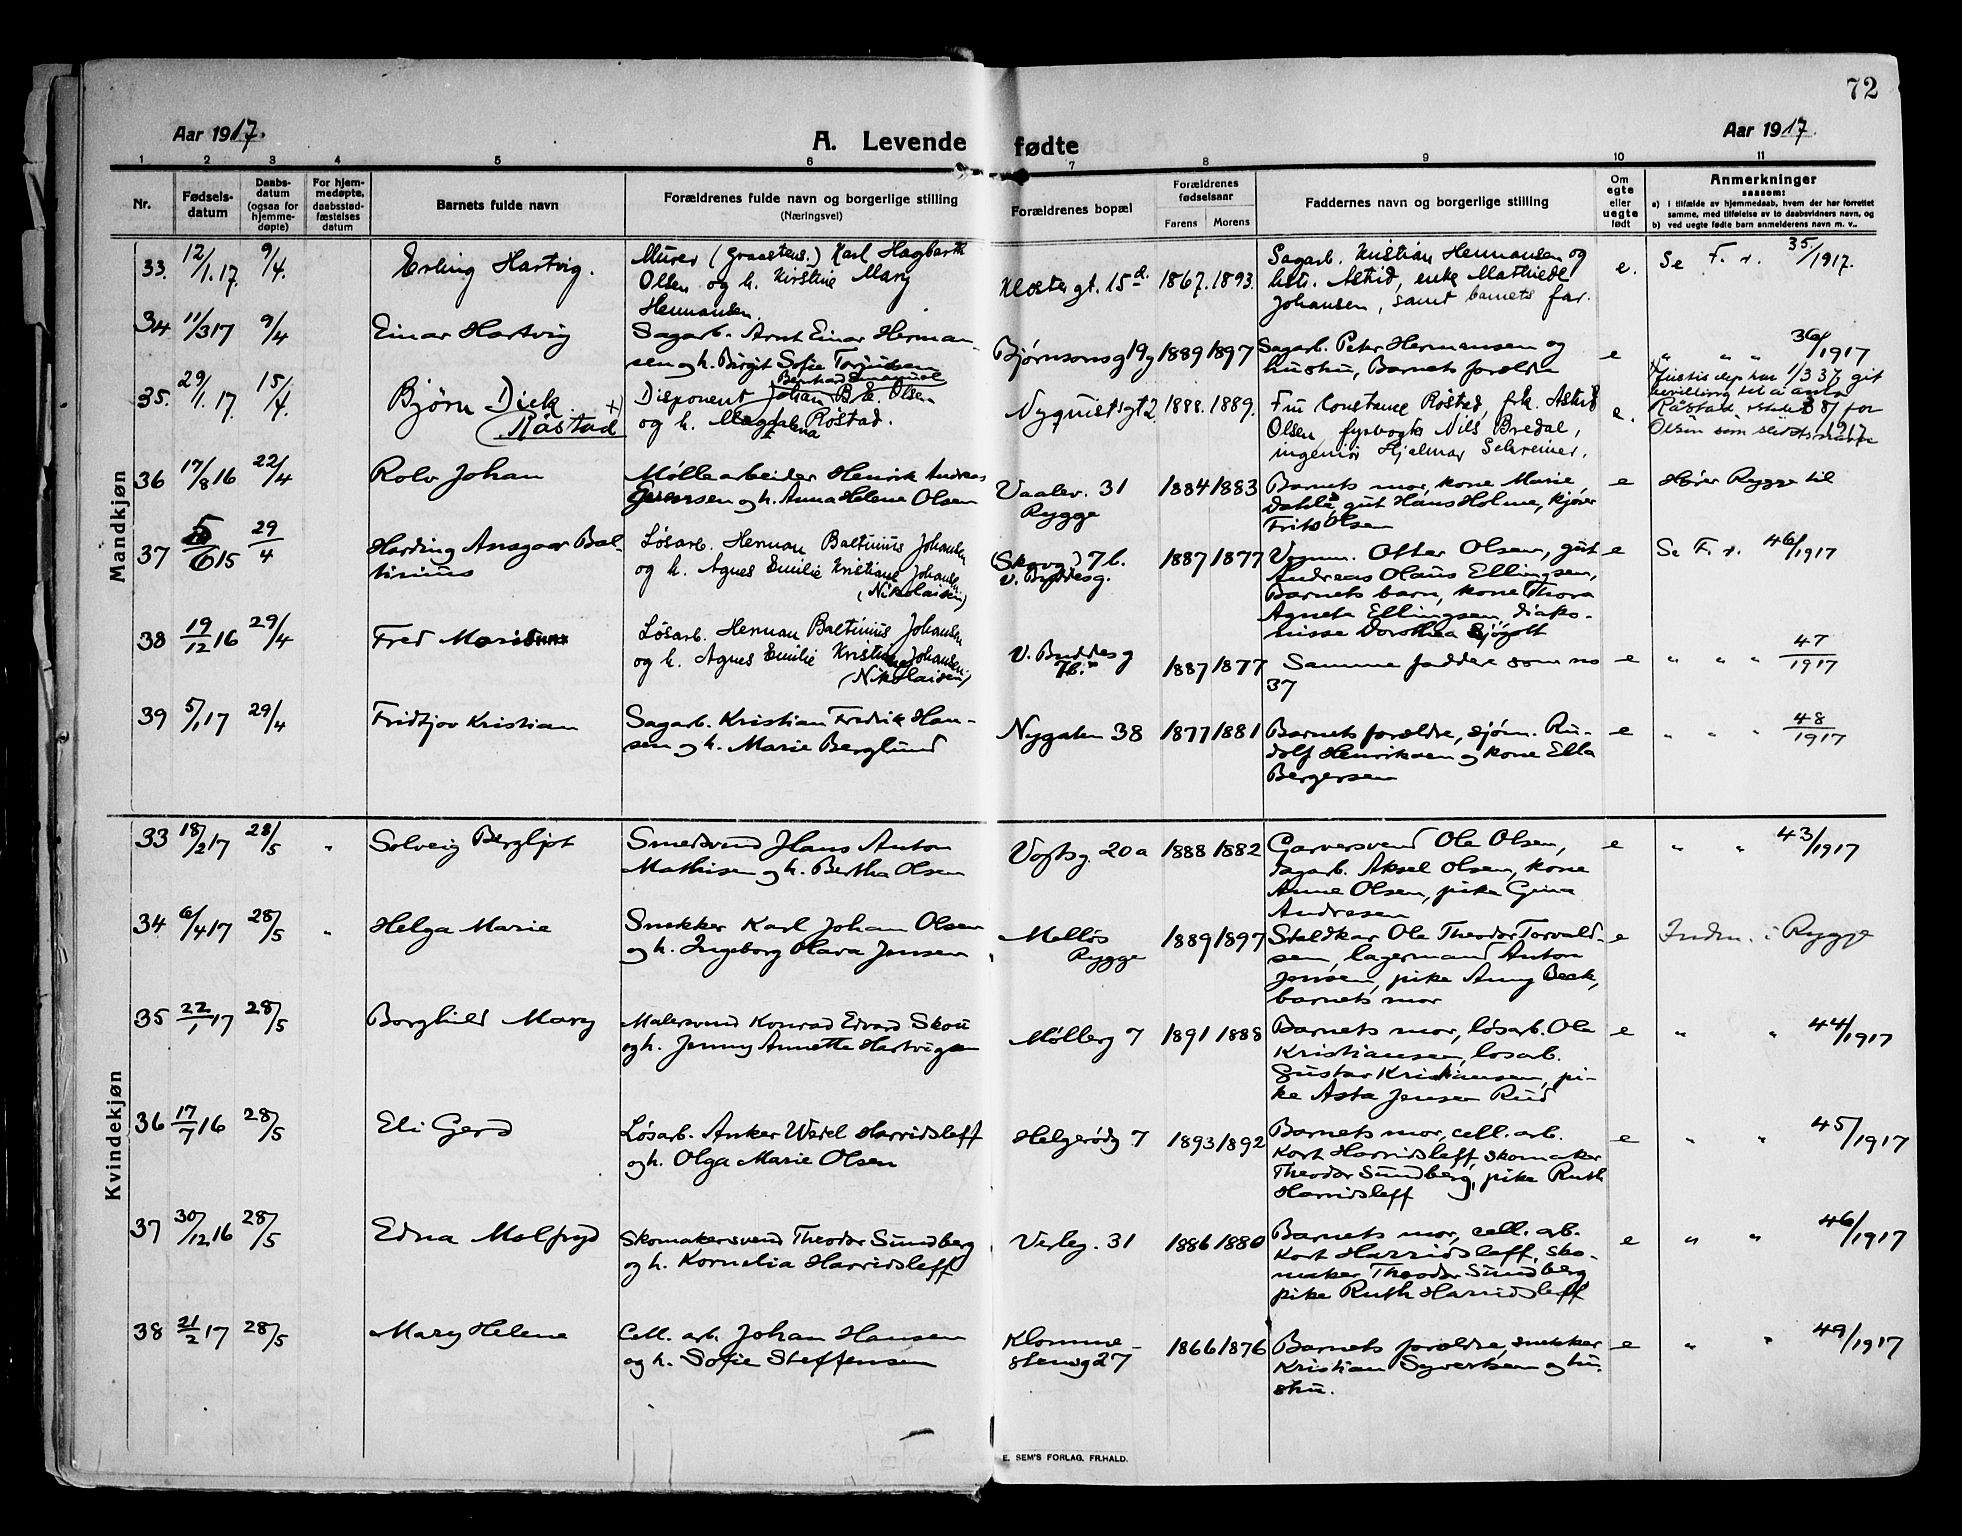 72
Aar 1917.
A. Levende fødte
Aar 1917.
1 2 3 4 5 6 7 8 9 10 11
Nr.
Fødsels-
datum
Daabs-
datum
(ogsaa for
hjemme-
døpte)
For hjem-
medøpte,
daabsstad-
fæstelses
datum
Barnets fulde navn
Forældrenes fulde navn og borgerlige stilling
(Næringsvei)
Forældrenes bopæl
Forældrenes
fødselsaar
Farens Morens
Faddernes navn og borgerlige stilling
Om
egte
eller
uegte
født
Anmerkninger
saasom:
a) i tilfælde av hjemmedaab, hvem der har forrettet
samme, med tilføielse av to daabsvidners navn, og
b) ved uegte fødte barn anmelderens navn m. v..
Mandkjøn
33. 12/1.17. 9/4. Erling Hartvig.
Murer (Graastens.) Karl Hagbarth
Olsen og h. Kirstine Mary
Hermansen.
Klostergt. 15d. 1867. 1893.
Sagarb. Kristian Hermansen og
hstr. Astrid, enke Mathilde
Johansen, samt barnets far.
e. Se F. r. 35/1917.
34 11/3 17 9/4 Einar Hartvig
Sagarb. Arnt Einar Herman-
sen og h. Birgit Sofie Torjusen
Bjørnsonsg 19g 1889 1897
Sagarb. Peter Hermansen og
hustru, Barnets forældre
e " " " 36/1917
35. 29/1.17. 15/4. Bjørn Dick +)
(Råstad
Bernhard Emanuel
Disponent Johan B. E. Olsen
og h. Magdalena Røstad.
Nyquistgt 2. 1888. 1889.
Fru Constance Røstad, frk. Astrid
Olsen, fyrvogter Nils Bredal,
ingeniør Hjalmar Schreiner.
e.
Justisdep har 1/3 37 git
bevilling til å anta
Råstad istedet for
Olsen som slektsnavn
37/1917
36 17/8 16 22/4 Rolv Johan
Møllearbeider Henrik Andreas
Syversen og h. Anna Helene Olsen
Vaalev. 31
Rygge
1884 1883
Barnets mor, kone Marie
Dahl, gut Hans Holme, kjører
Frits Olsen
e Hører Rygge til
37 5/6 15 29/4 Harding Ansgar Bal-
tinius
Løsarb. Herman Baltinius Johansen
og h. Agnes Emilie Kristiane Johansen
(Nikolaisen)
(Skovg) 7b.
v. Buddesg.
1887 1877
Vognm. Otter Olsen, gut
Andreas Olaus Ellingsen,
Barnets barn, kone Thora
Agneta Ellingsen, diako-
nisse Dorothea Sjøgolt
e Se F. r. 46/1917
38 19/12 16 29/4 Fred
Løsarb. Herman Baltinius Johansen
og h. Agnes Emilie Kristiane Johansen
(Nikolaisen)
V. Buddesg
7b.
1887 1877
Samme faddere som no
37
e " " " 47/1917
39 5/1 17 29/4 Fridtjov Kristian
Sagarb. Kristian Fredrik Han-
sen og h. Marie Berglund
Nygaten 38 1877 1881
Barnets forældre, sjøm. Ru-
dolf Henriksen og kone Ella
Bergersen
e " " " 48/1917
Kvindekjøn
33 18/2 17 28/5 " Solveig Bergljot
Smedsvend Hans Anton
Mathisen og h. Bertha Olsen
Vogtsg. 20a 1888 1882
Garversvend Ole Olsen,
sagarb. Aksel Olsen, kone
Anne Olsen, pike Gina
Andresen
e " " 43/1917
34 6/4 17 28/5 " Helga Marie
Snekker Karl Johan Olsen
og h. Ingeborg Olava Jensen
Melløs
Rygge
1889 1897
Staldkar Ole Theodor Torvald-
sen, lagermand Anton
Jensen, pike Anny Beck,
barnets mor
e Indm. i Rygge
35 22/1 17 28/5 Borghild Mary
Malersvend Konrad Edvard Skou
og h. Jenny Annette Hartvigsen
Møllerg 7 1891 1888
Barnets mor, løsarb. Ole
Kristiansen, løsarb.
Gustav Kristiansen, pi-
ke Asta Jensen Rud
e " " 44/1917
36 17/7 16 28/5 Eli Gerd
Løsarb. Anker Wedel Harridsleff
og h. Olga Marie Olsen
Helgerødg 7 1893 1892
Barnets mor, cell. arb.
Kort Harridsleff, skomaker
Theodor Sundberg, pike Ruth
Harridsleff
e " " 45/1917
37 30/12 16 28/5 Edna Malfryd
Skomakersvend Theodor Sundberg
og h. Kornelia Harridsleff
Verleg. 31 1886 1880
Barnets mor, cell. arb.
Kort Harridsleff, sko-
maker Theodor Sundberg
pike Ruth Harridsleff
e " " 46/1917
38 21/2 17 28/5 Mary Helene
Cell. arb. Johan Hansen
og h. Sofie Steffensen
Klomme-
stensg 27
1866 1876
Barnets forældre, snekker
Kristian Syvertsen og hu-
stru.
e " " 49/1917
E. SEM'S FORLAG. FR.HALD.